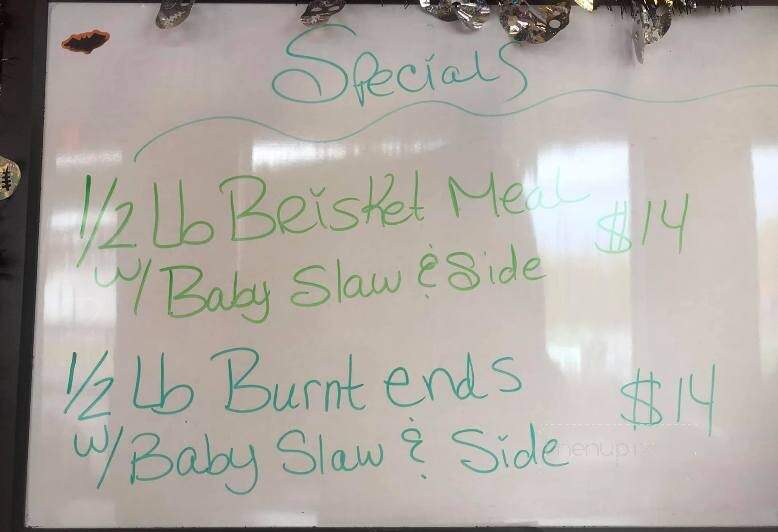 Specials
1/2 Lb Brisket Meal $14
w/ Baby Slaw & Side
1/2 Lb Burnt ends $14
w/ Baby Slaw & Side